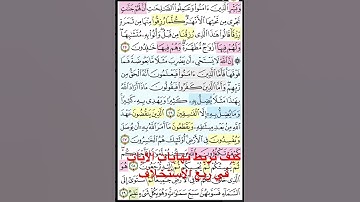 وَبَشِّرِ الَّذِينَ ءَامَنُوا وَعَمِلُوا الصَّٰلِحَٰتِ أَنَّ لَهُمْ جَنَّٰتٍ
تَجْرِي مِن تَحْتِهَا الْأَنْهَٰرُ كُلَّمَا رُزِقُوا مِنْهَا مِن ثَمَرَةٍ
رِّزْقًا قَالُوا هَٰذَا الَّذِي رُزِقْنَا مِن قَبْلُ وَأُتُوا بِهِ مُتَشَٰبِهًا
وَلَهُمْ فِيهَا أَزْوَٰجٌ مُّطَهَّرَةٌ وَهُمْ فِيهَا خَٰلِدُونَ ٢٥
إِنَّ اللَّهَ لَا يَسْتَحْيِ أَن يَضْرِبَ مَثَلًا مَّا بَعُوضَةً فَمَا
فَوْقَهَا فَأَمَّا الَّذِينَ ءَامَنُوا فَيَعْلَمُونَ أَنَّهُ الْحَقُّ مِن
رَّبِّهِمْ وَأَمَّا الَّذِينَ كَفَرُوا فَيَقُولُونَ مَاذَا أَرَادَ اللَّهُ
بِهَٰذَا مَثَلًا يُضِلُّ بِهِ كَثِيرًا وَيَهْدِي بِهِ كَثِيرًا
وَمَا يُضِلُّ بِهِ إِلَّا الْفَٰسِقِينَ ٢٦ الَّذِينَ يَنقُضُونَ عَهْدَ
اللَّهِ مِن بَعْدِ مِيثَٰقِهِ وَيَقْطَعُونَ
كيف تربط نهايات الآيات
وَيُفْسِدُونَ فِي الْأَرْضِ أُولَٰئِكَ هُمُ
في ربع الاستخلاف
السَّمَاءِ فَسَوَّىٰهُنَّ سَبْعَ سَمَٰوَٰتٍ وَهُوَ بِكُلِّ شَيْءٍ عَلِيمٌ ٢٩